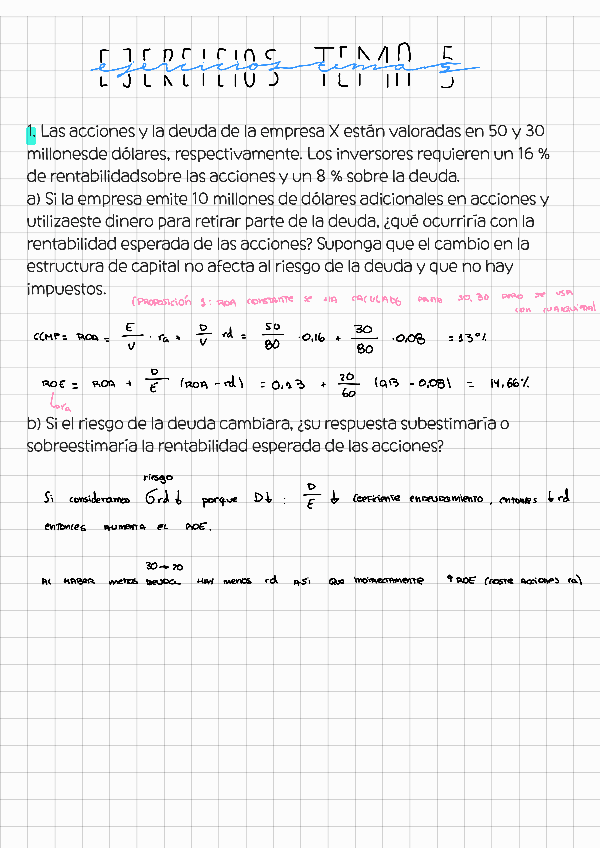 EJERCICIOS TEMA 5
ejercicios tema 5
1. Las acciones y la deuda de la empresa X están valoradas en 50 y 30
millonesde dólares, respectivamente. Los inversores requieren un 16 %
de rentabilidadsobre las acciones y un 8 % sobre la deuda.
a) Si la empresa emite 10 millones de dólares adicionales en acciones y
utilizaeste dinero para retirar parte de la deuda, ¿qué ocurriría con la
rentabilidad esperada de las acciones? Suponga que el cambio en la
estructura de capital no afecta al riesgo de la deuda y que no hay
impuestos.
(PROPOSICIÓN 1: ROA CONSTANTE SE HA CALCULADO PARA 50, 30 PERO SE USA
CON CUALQUIERA)
CCMP = ROA = E/V · ra + D/V rd = 50/80 · 0,16 + 30/80 · 0,08 = 13%
ROE = ROA + D/E (ROA - rd) = 0,13 + 20/60 (0,13 - 0,08) = 14,66%
ra
b) Si el riesgo de la deuda cambiara, ¿su respuesta subestimaría o
sobreestimaría la rentabilidad esperada de las acciones?
riesgo
Si consideramos σrd ↓ porque D↓ : D/E ↓ coeficiente endeudamiento, entonces ↓ rd
entonces aumenta el ROE.
30 → 20
Al haber menos deuda hay menos rd así que indirectamente ↑ ROE (coste acciones ra)